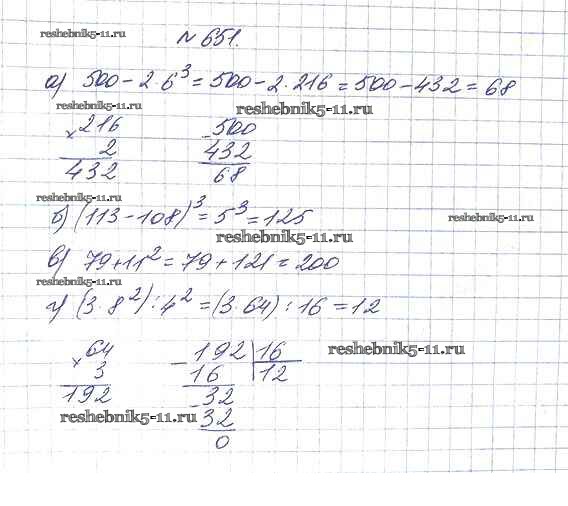 reshebnik5-11.ru
№651.
а) 500-2·6³=500-2·216=500-432=68
reshebnik5-11.ru reshebnik5-11.ru
×216 -500
2 432
432 68
reshebnik5-11.ru
б) (113-108)³=5³=125 reshebnik5-11.ru
reshebnik5-11.ru
в) 79+11²=79+121=200
reshebnik5-11.ru
г) (3·8²):4²=(3·64):16=12
×64 -192|16 reshebnik5-11.ru
3 16 12
192 -32
reshebnik5-11.ru 32
0